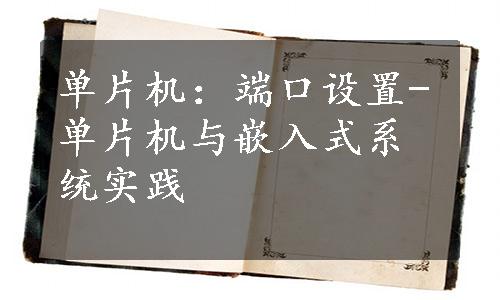 单片机：端口设置-
单片机与嵌入式系
统实践